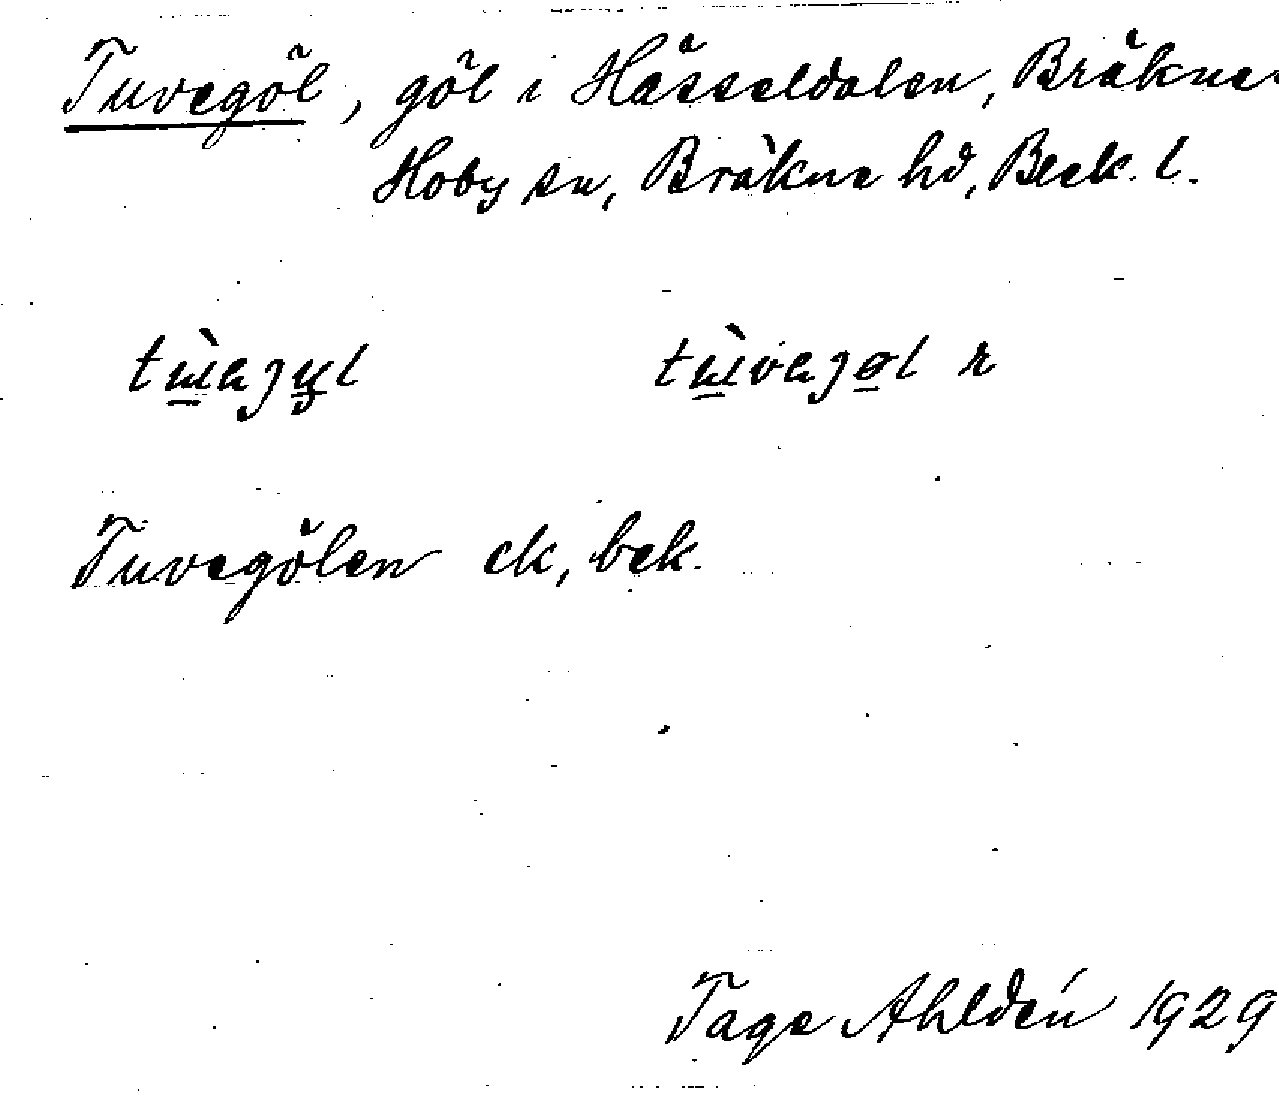 Tuvegöl, göl i Hässeldalen, Bräkne-
Hoby sn, Bräkne hd, Blek. l.
tɯ̀eȝyl tɯ̀veȝøl r
Tuvegölen ek, bek.
Tage Ahldén 1929